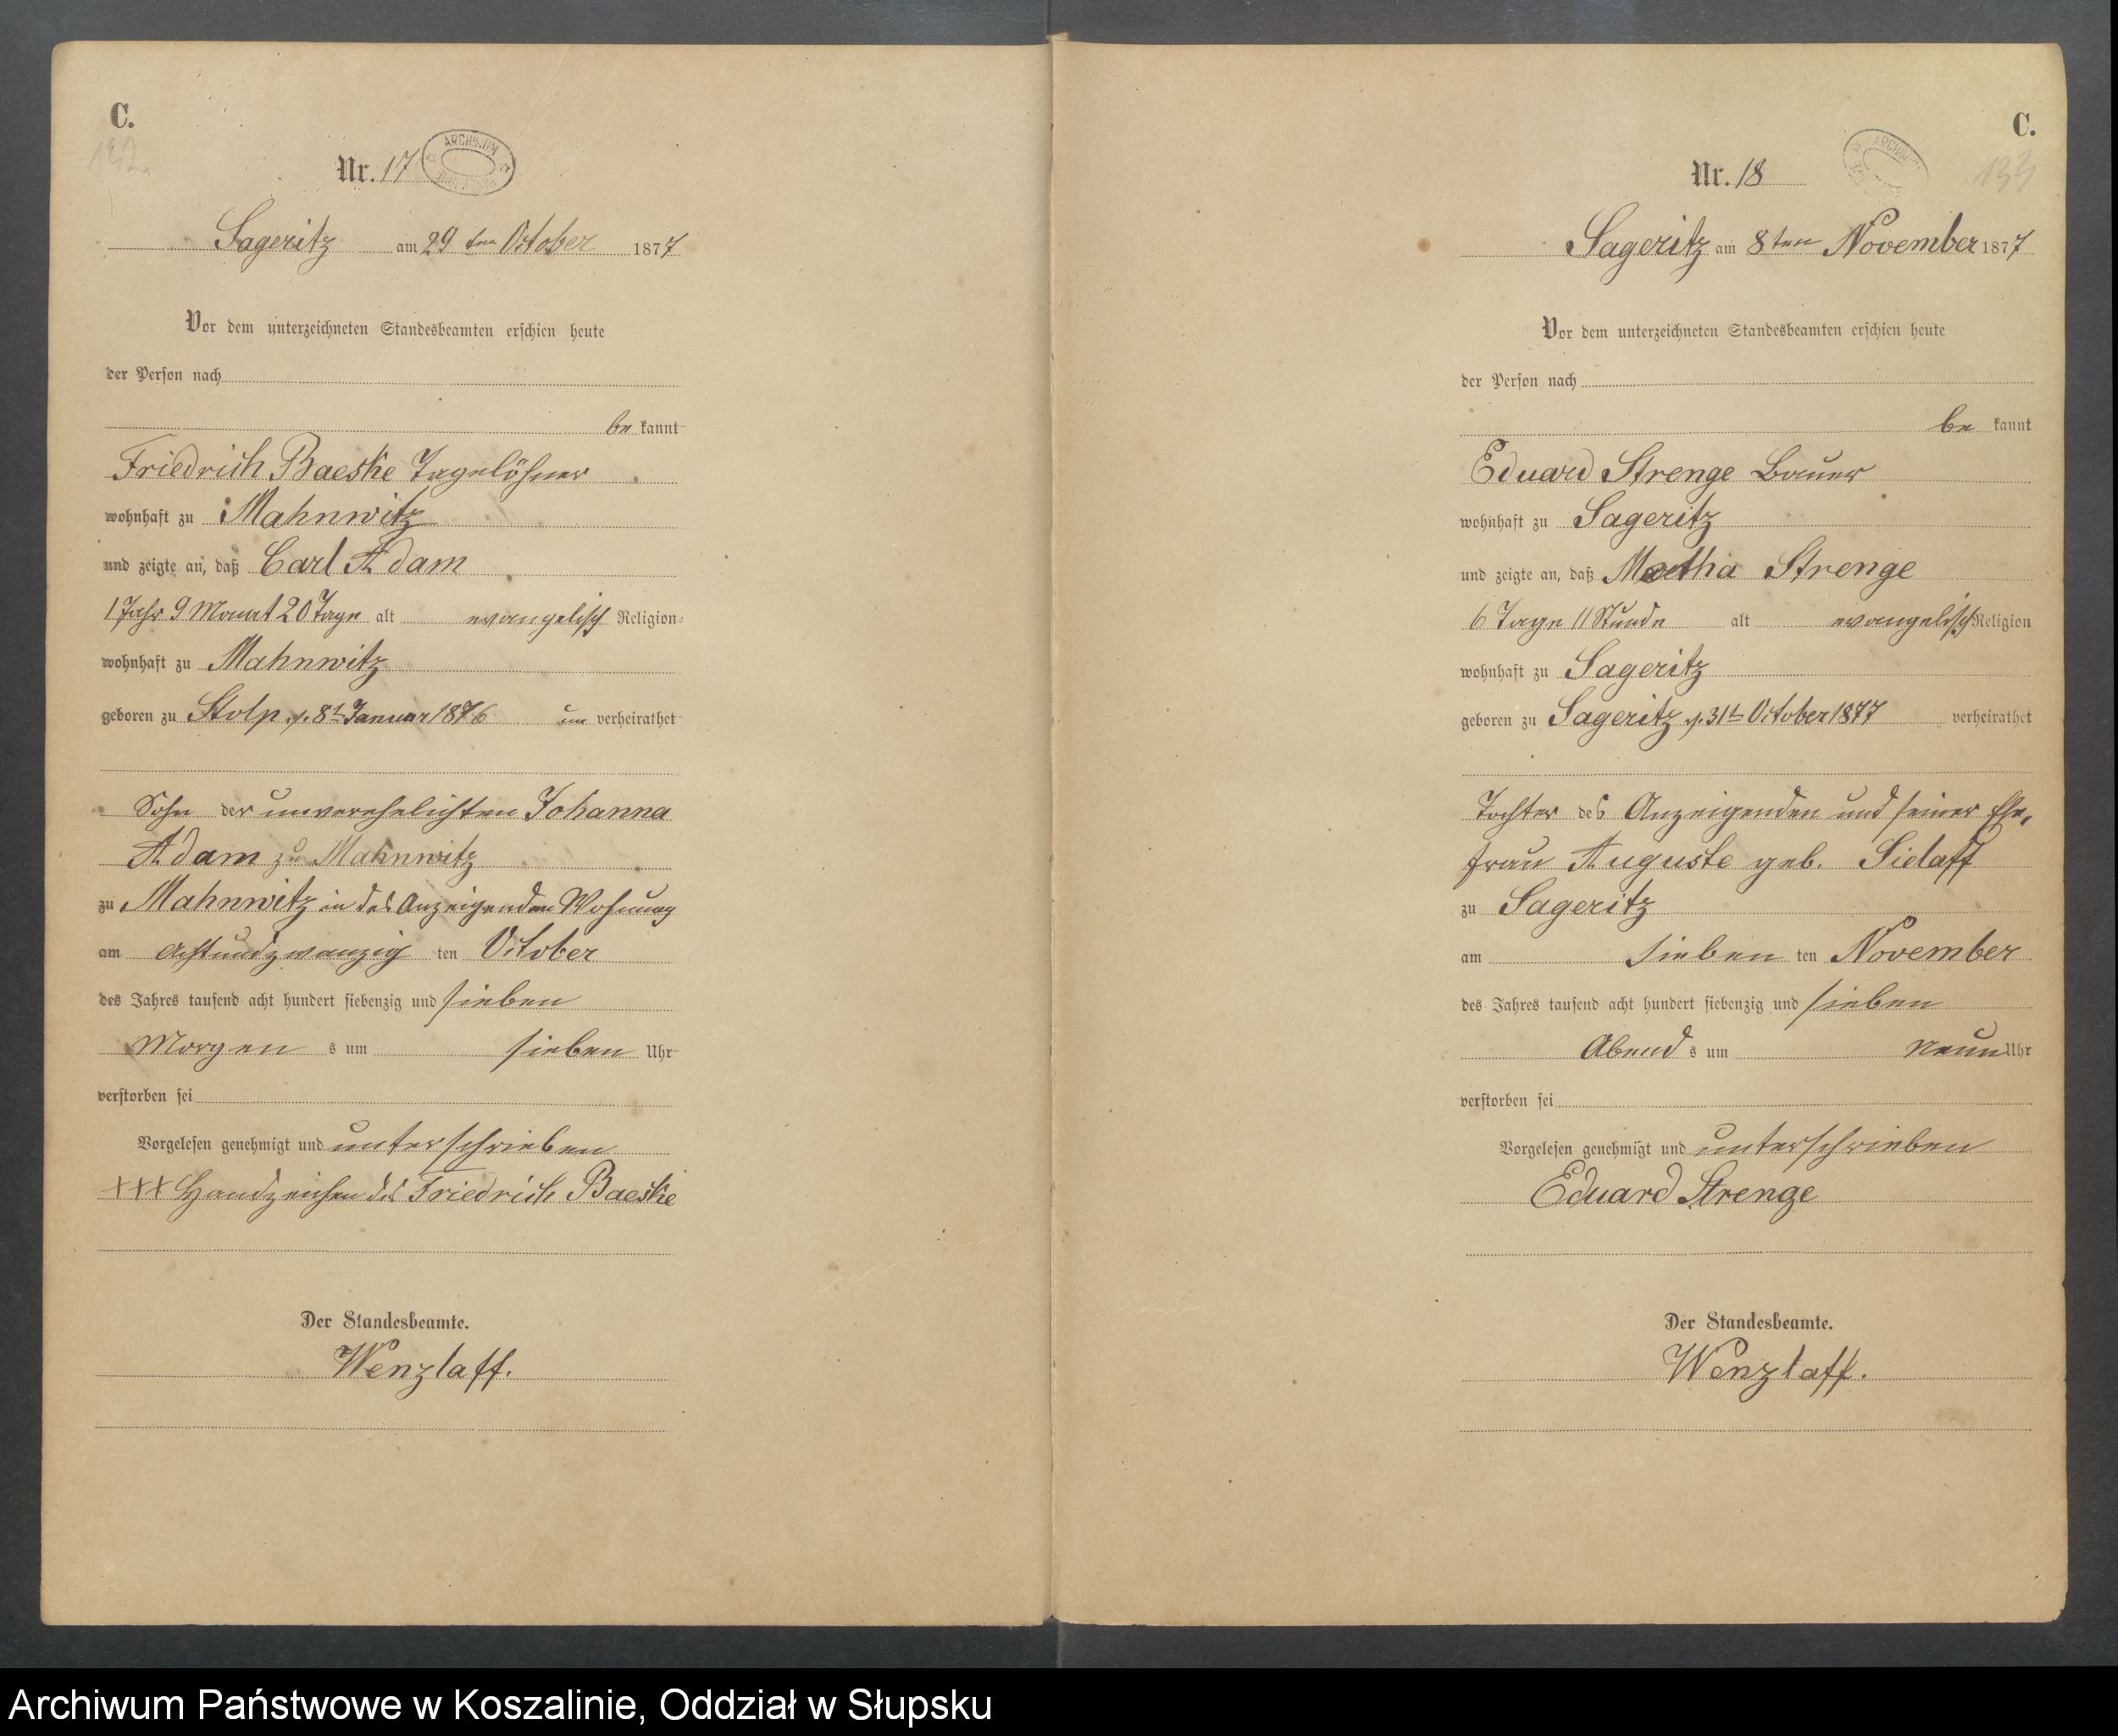 C.
Nr. 17
ARCHIWUM
Sageritz am 29 ten October 1877
Vor dem unterzeichneten Standesbeamten erschien heute
der Person nach
be kannt
Friedrich Baeske Tagelöhner
wohnhaft zu Mahnwitz
und zeigte an, daß Carl Adam
1 Jahr 9 Monat 20 Tage alt evangelisch Religion
wohnhaft zu Mahnwitz
geboren zu Stolp d. 8t Januar 1876 un verheirathet
Sohn der unverehelichten Johanna
Adam zu Mahnwitz
zu Mahnwitz in des Anzeigenden Wohnung
am achtundzwanzig ten October
des Jahres tausend acht hundert siebenzig und sieben
Morgen s um sieben Uhr
verstorben sei
Vorgelesen genehmigt und unterschrieben
XXX Handzeichen des Friedrich Baeske
Der Standesbeamte.
Wenzlaff.
C.
133
Nr. 18
ARCHIWUM
Sageritz am 8 ten November 1877
Vor dem unterzeichneten Standesbeamten erschien heute
der Person nach
be kannt
Eduard Strenge Bauer
wohnhaft zu Sageritz
und zeigte an, daß Martha Strenge
6 Tage 11 Stunde alt evangelisch Religion
wohnhaft zu Sageritz
geboren zu Sageritz d. 31t October 1877 verheirathet
Tochter des Anzeigenden und seiner Ehe,
frau Auguste geb. Sielaff
zu Sageritz
am sieben ten November
des Jahres tausend acht hundert siebenzig und sieben
Abend s um neun Uhr
verstorben sei
Vorgelesen genehmigt und unterschrieben
Eduard Strenge
Der Standesbeamte.
Wenzlaff.
Archiwum Państwowe w Koszalinie, Oddział w Słupsku